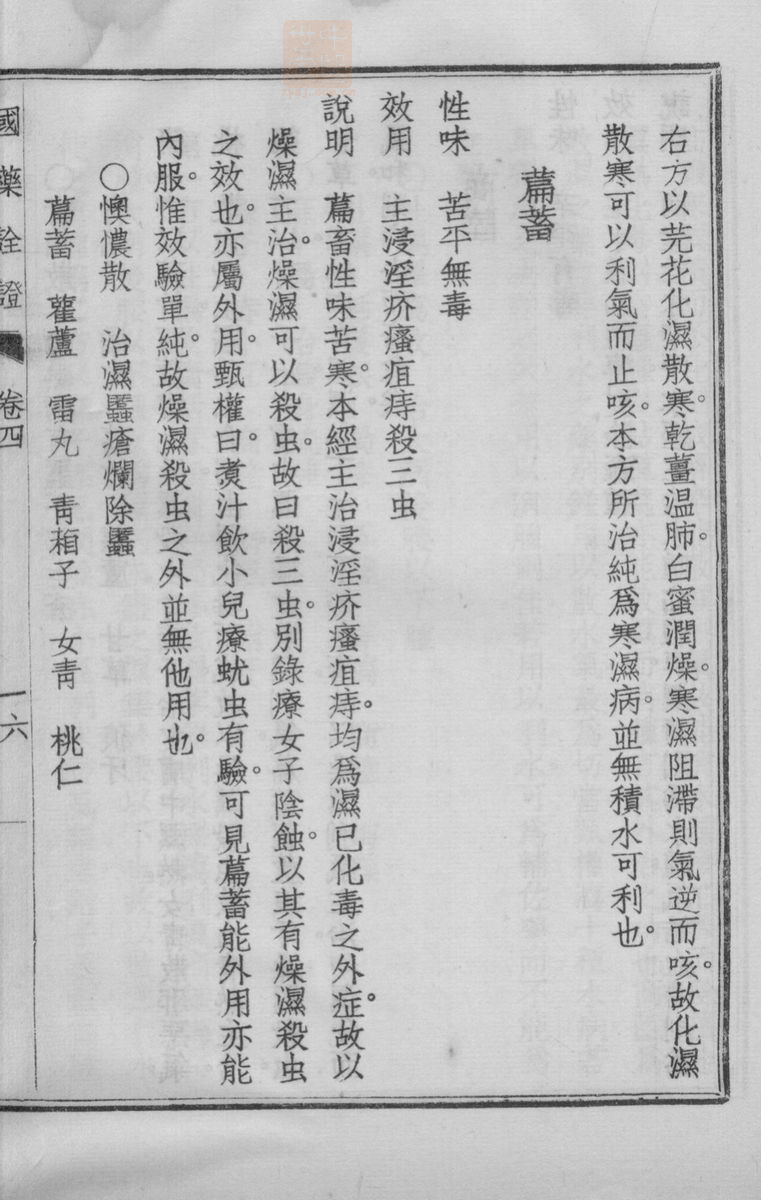 右方以芫花化濕散寒。乾薑温肺。白蜜潤燥。寒濕阻滯則氣逆而咳。故化濕
散寒可以利氣而止咳。本方所治純爲寒濕病。並無積水可利也。
萹蓄
性味　苦平無毒
效用　主浸淫疥瘙疽痔殺三虫
說明　萹畜性味苦寒。本經主治浸淫疥瘙疽痔。均爲濕已化毒之外症。故以
燥濕主治。燥濕可以殺虫。故曰殺三虫。別錄療女子陰蝕。以其有燥濕殺虫
之效也。亦屬外用。甄權曰。煑汁飲小兒療蚘虫有驗。可見萹蓄能外用亦能
內服。惟效驗單純。故燥濕殺虫之外並無他用也。
○懊憹散　治濕䘌瘡爛除䘌
萹蓄　雚蘆　雷丸　靑葙子　女靑　桃仁
國藥詮證　卷四　一六